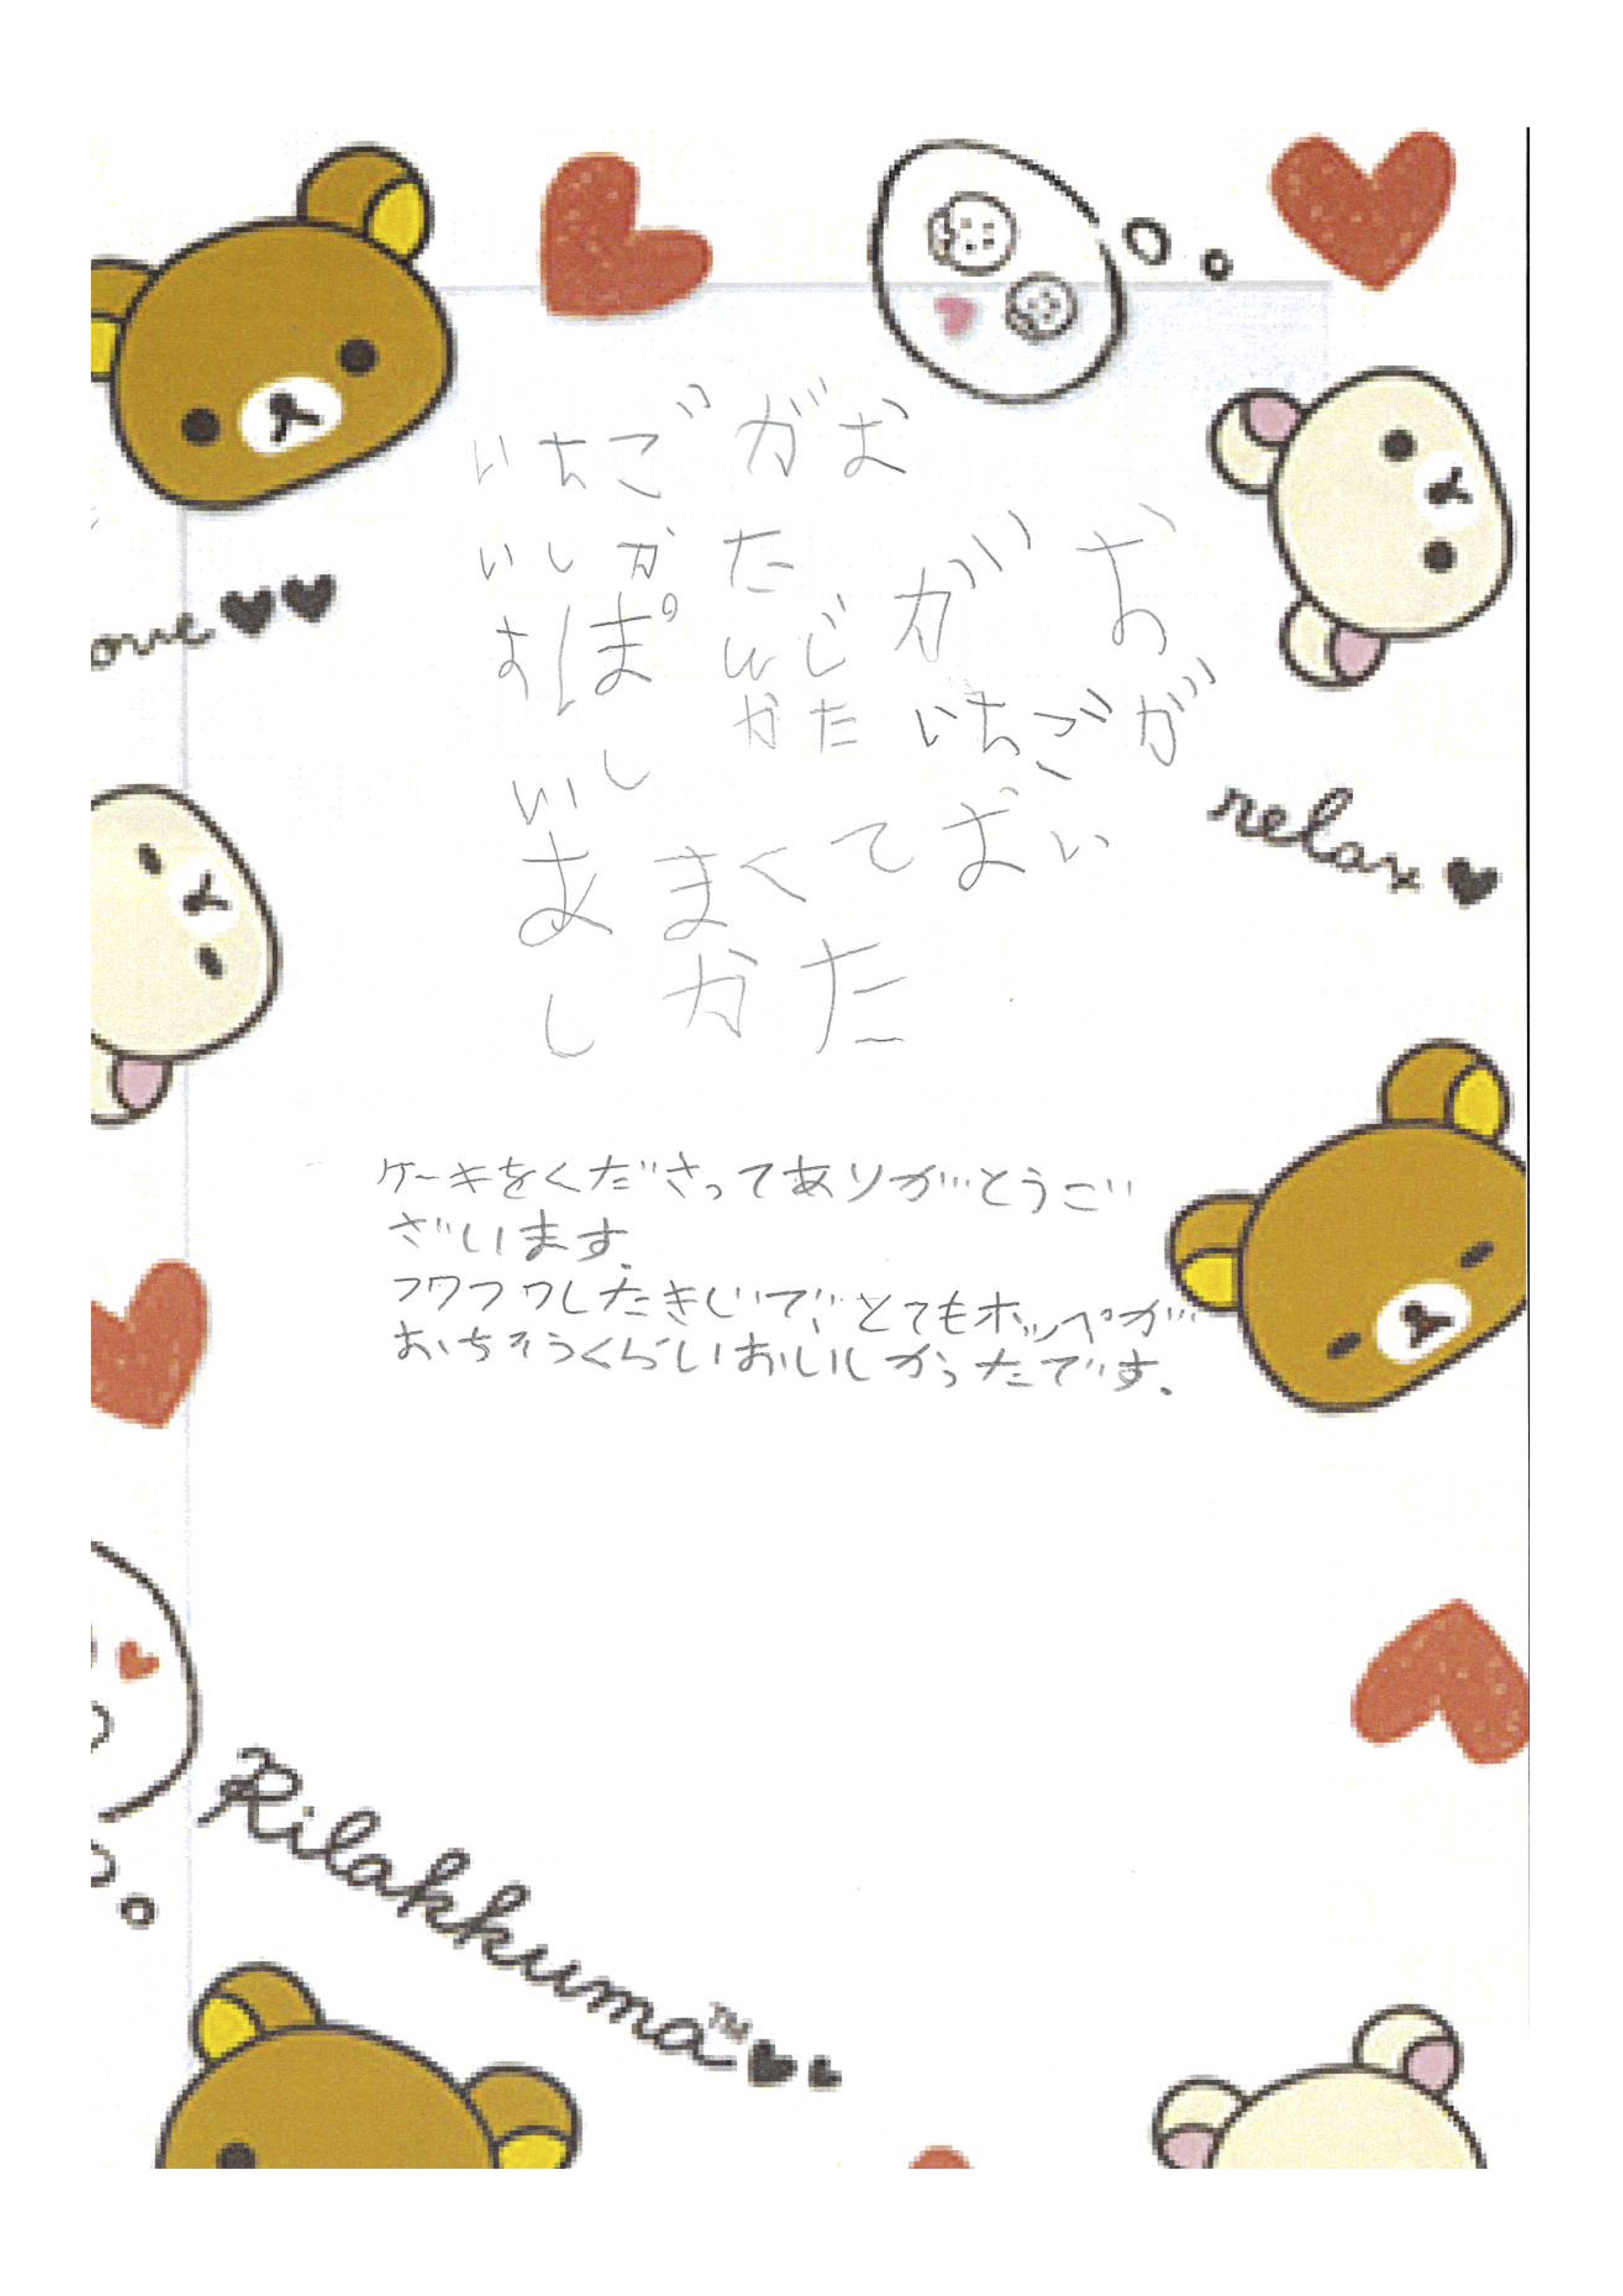 いちごがお
いしかた
すぽんじがお
いしかた いちごが
あまくておい
しかた
ケーキをくださってありがとうご
ざいます.
フワフワしたきじいで、とてもホッペが
おちそうくらいおいしかったです.
ove
relax
Rilakkuma™